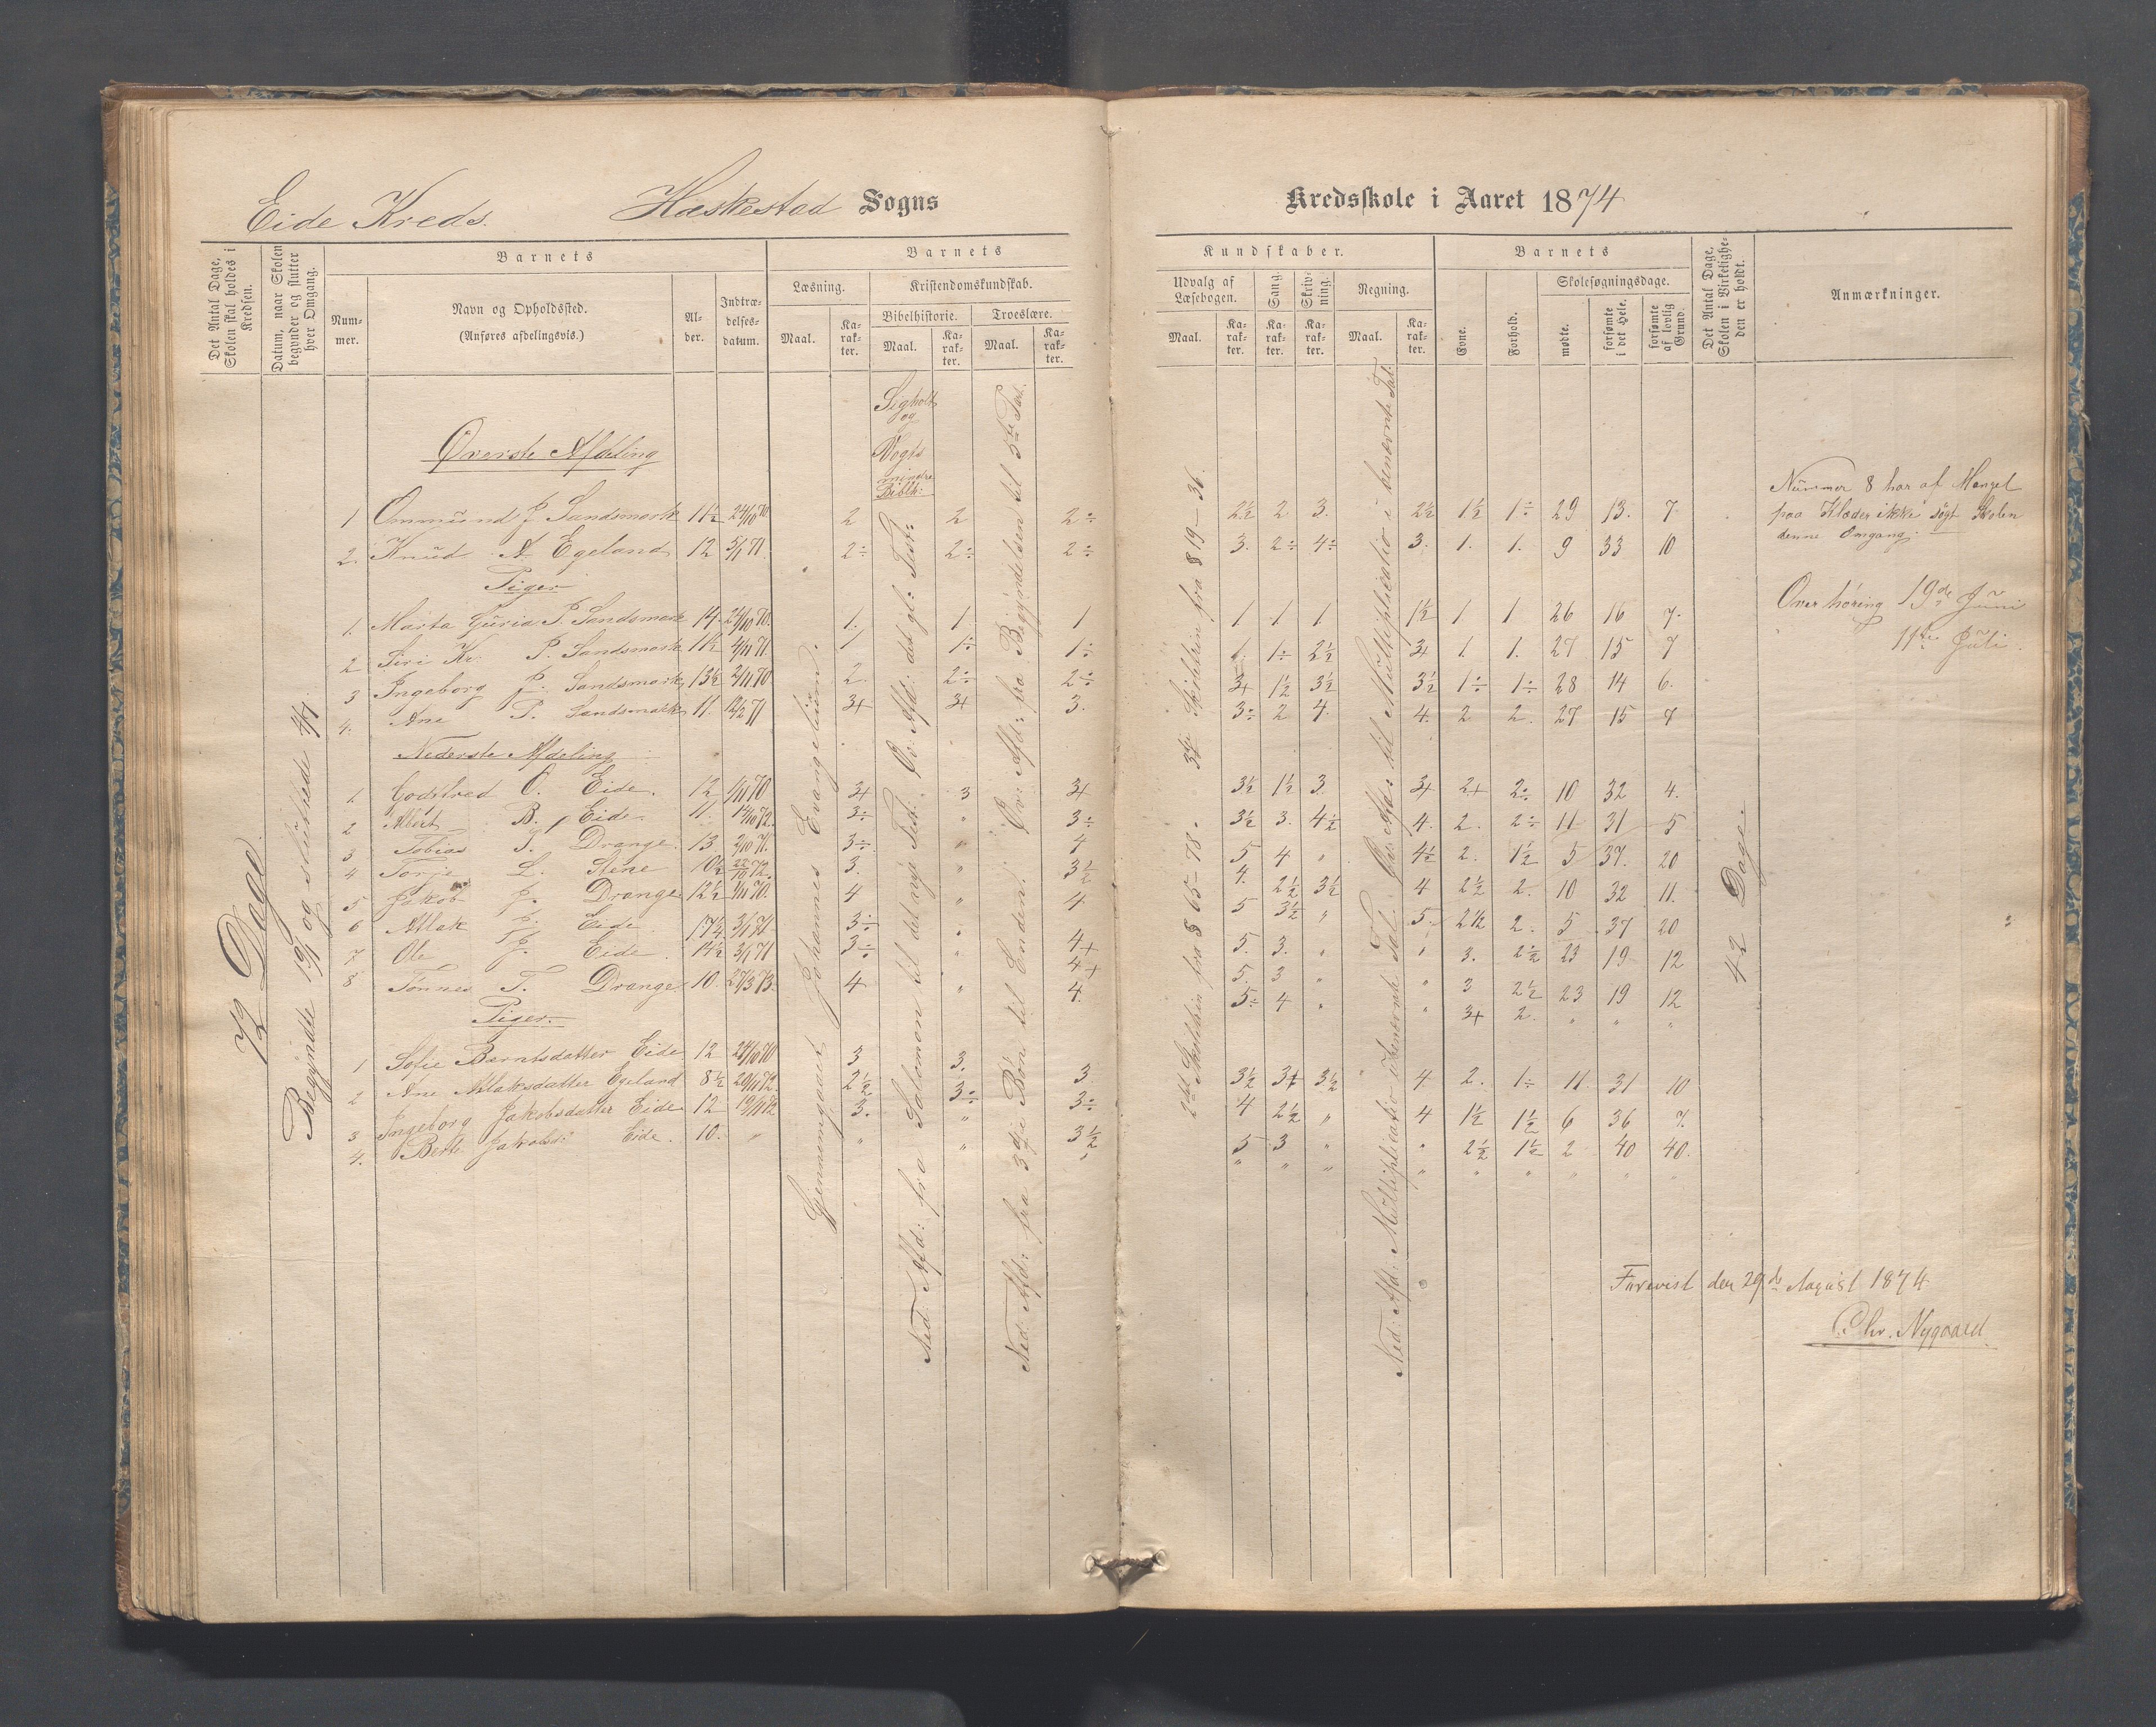 Eide Kreds. Heskestad Sogns
Kredsskole i Aaret 1874
Det Antal Dage, Skolen skal holdes i Kredsen.
Datum, naar Skolen begynder og slutter hver Omgang.
Barnets
Barnets
Nummer.
Navn og Opholdssted.
(Anføres afdelingsvis.)
Alder.
Indtrædelsesdatum.
Læsning.
Kristendomskundskab.
Bibelhistorie.
Troeslære.
Maal.
Karakter.
Maal.
Karakter.
Maal.
Karakter.
Kundskaber.
Barnets
Udvalg af Læsebogen.
Sang.
Skrivning.
Regning.
Skolesøgningsdage.
Maal.
Karakter.
Karakter.
Karakter.
Maal.
Karakter.
Evne.
Forhold.
mødte.
forsømte i det Hele.
forsømte af lovlig Grund.
Det Antal Dage, Skolen i Virkeligheden er holdt.
Anmærkninger.
72 Dage.
Begyndte 19/1 og sluttede 4/7
og
Vogts
mindre
Biblh:
Øverste Afdeling
1 Ommund J Sandsmark 11½ 24/10 70 2 2 2÷ 2½ 2 3. 2½ 1½ 1÷ 29 13. 7
2. Knud A. Egeland 12 5/1 71. 2÷ 2÷ 2÷ 3. 2÷ 4÷ 3. 1. 1. 9 33 10
Piger
1. Marta Guria P. Sandsmark 14. 24/10 70. 1. 1 1 1 1 1 1½ 1 1 26 16 7.
2 Siri Kr. P. Sandsmark 11½ 4/11 71. 1 1÷ 1÷ 1. 1÷ 2½ 3+ 1. 1. 27 15 7
3 Ingeborg J. Sandsmark 13½ 2/11 70. 2. 2÷ 2÷ 3+ 1½ 3½ 3½ 1÷ 1÷ 28 14 6.
4. Ane P. Sandsmark 11. 12/2 71 3+ 3+ 3. 3÷ 2 4. 4. 2 2. 27 15 7
Nederste Afdeling
1. Godtfred O. Eide. 12 1/11 70 3+ 3 3+ 3½ 1½ 3 3+ 2+ 2÷ 10 32 4.
2 Albert B. Eide 11. 14/10 72. 3÷ " 3÷ 3½ 3. 4½ 4. 2. 2÷ 11 31 5
3 Tobias T. Drange. 13. 2/10 71. 3÷ " 4 5 4 " 4½ 2. 1½ 5 37. 20
4 Torje L. Stene 10½ 22/10 72. 3. " 3½ 4. 2½ 3½ 4 2½ 2. 10 32 11.
5 Jakob J. Drange 12½ 1/11 70. 4 " 4 5 3½ " 5. 2½ 2. 5 37 20
6 Atlak J. Eide 17¼ 3/1 71 3÷ " 4+ 5. 3. " " 3. 2½ 23 19 12
7 Ole J. Eide. 14½ 3/1 71 3÷ " 4+ 5. 3 " " 3 2½ 23 19 12
8 Tønnes T. Drange 10. 27/3 73. 4 " 4. 5÷ 4 " " 3+ 2. " " "
Piger.
1 Sofie Berntsdatter Eide 12 24/10 70 3 3. 3 3½ 3+ 3½ 4 2. 1÷ 11 31 10
2 Ane Atlaksdatter Egeland 8½ 20/11 72. 2½ 3÷ 3÷ 4 2½ " 4 1½ 1½ 6 36 7.
3 Ingeborg Jakobsdatter Eide 12 19/11 72 3. " 3½ 5 3 " " 2½ 1½ 2 40 40.
4. Berte Jakobs: Eide. 10. " " " " " " " " " " " " "
Gjennemgaaet Johannes Evangelium.
Ned: Afd: fra Salomon til det nye Test. Øv: Afd: det gl: Test:
Ned: Afd: fra 3die Bøn til Enden. Øv: Afd: fra Begyndelsen til 3die Part.
2det Skoletrin fra § 65-78. 3die Skoletrin fra § 19-36.
Ned: Afd: Multiplication i benævnte Tal. Øv: Afd: til Multiplication i benævnte Tal.
42 Dage.
Nummer 8 har af Mangel
paa Klæder ikke søgt Skolen
denne Omgang.
Over høring 19de Juni
11te Juli.
Forevist den 29de August 1874
Chr. Nygaard